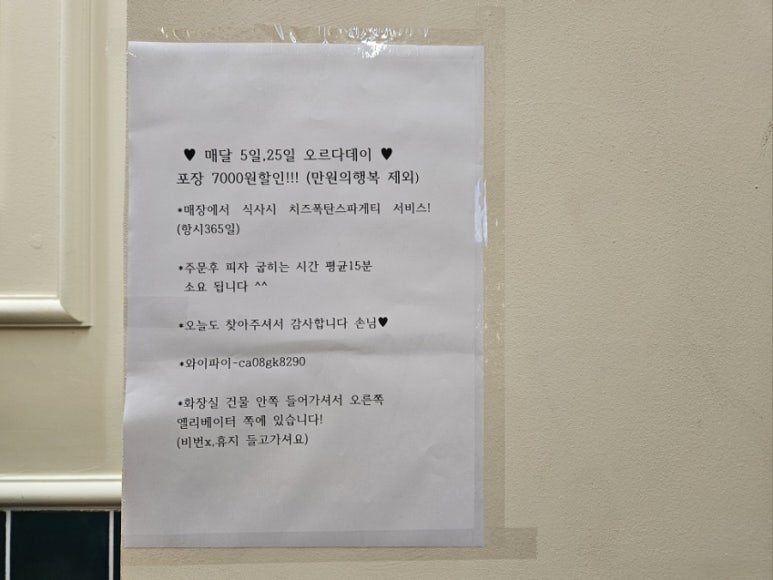 ♥ 매달 5일,25일 오르다데이 ♥
포장 7000원할인!!! (만원의행복 제외)
*매장에서 식사시 치즈폭탄스파게티 서비스!
(항시365일)
*주문후 피자 굽히는 시간 평균15분
소요 됩니다 ^^
*오늘도 찾아주셔서 감사합니다 손님♥
*와이파이-ca08gk8290
*화장실 건물 안쪽 들어가셔서 오른쪽
엘리베이터 쪽에 있습니다!
(비번x,휴지 들고가셔요)